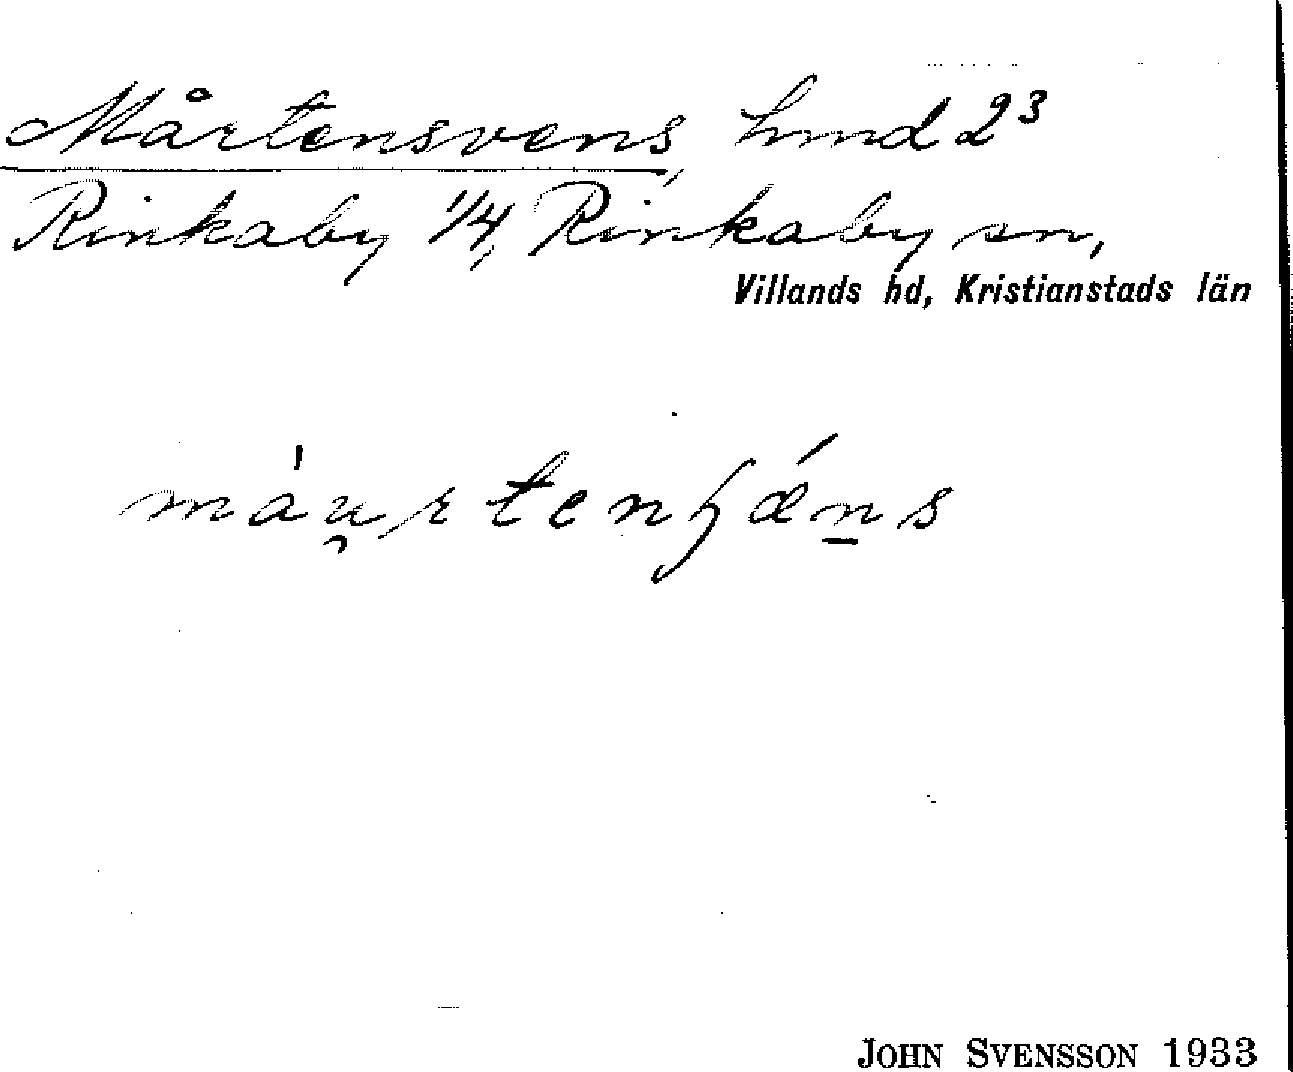 Mårtensvens, hmd 2³
Rinkaby 1/4, Rinkaby sn,
Villands hd, Kristianstads län
JOHN SVENSSON 1933